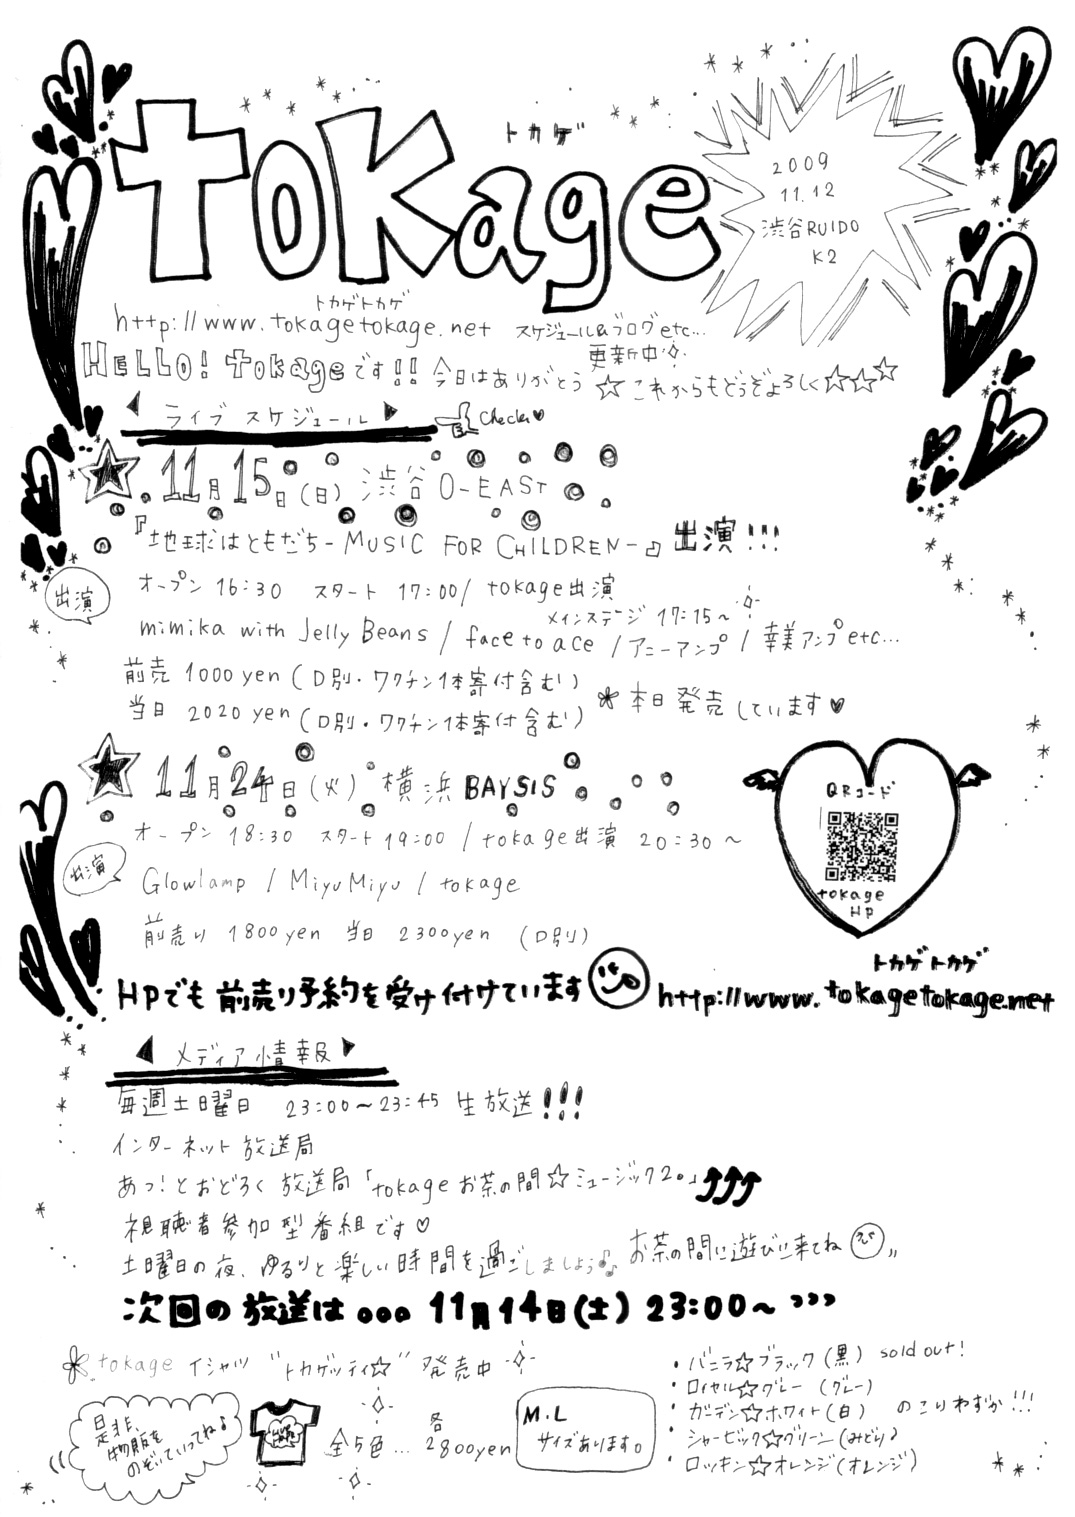 トカゲ
tokage
2009
11.12
渋谷RUIDO
K2
トカゲトカゲ
http://www.tokagetokage.net スケジュール&ブログetc...
更新中
HELLO! tokageです!! 今日はありがとう ☆ これからもどうぞよろしく☆☆☆
◀ ライブ スケジュール ▶ Check♥
★ 11月15日(日) 渋谷 O-EAST
『地球はともだち-MUSIC FOR CHILDREN-』 出演!!!
出演
オープン 16:30 スタート 17:00/ tokage出演
メインステージ 17:15~
mimika with Jelly Beans / face to ace / アニーアンプ / 幸美アンプetc...
前売 1000yen (D別・ワクチン1本寄付含む)
当日 2020yen (D別・ワクチン1本寄付含む)
* 本日発売しています♥
★ 11月24日(火) 横浜 BAYSIS
オープン 18:30 スタート 19:00 / tokage出演 20:30~
出演
Glowlamp / MiyuMiyu / tokage
前売り 1800yen 当日 2300yen (D別)
QRコード
tokage
HP
HPでも前売り予約を受け付けています
トカゲトカゲ
http://www.tokagetokage.net
◀ メディア情報 ▶
毎週土曜日 23:00~23:45 生放送!!!
インターネット放送局
あっ!とおどろく放送局「tokageお茶の間☆ミュージック2。」
視聴者参加型番組です♡
土曜日の夜、ゆるりと楽しい時間を過ごしましょう♪♪ お茶の間に遊びに来てね
次回の放送は... 11月14日(土) 23:00~
tokage Tシャツ "トカゲッティ☆" 発売中
是非、
物販を
のぞいていってね♪
全5色... 各2800yen
M.L
サイズあります。
・バニラ☆ブラック(黒) sold out!
・ロイヤル☆グレー (グレー)
・ガーデン☆ホワイト(白) のこりわずか!!!
・シャービック☆グリーン(みどり)
・ロッキン☆オレンジ(オレンジ)